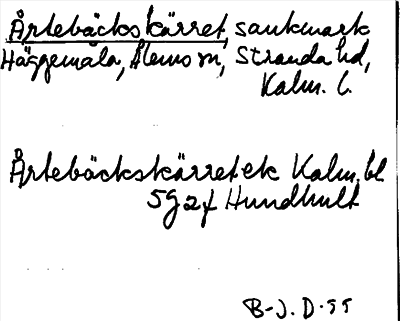 Årtebäckskärret, sankmark
Häggemåla, Ålems sn, Stranda hd,
Kalm. l.
Årtebäckskärret ek Kalm. bl
5g2f Hundhult
B-J. D-55